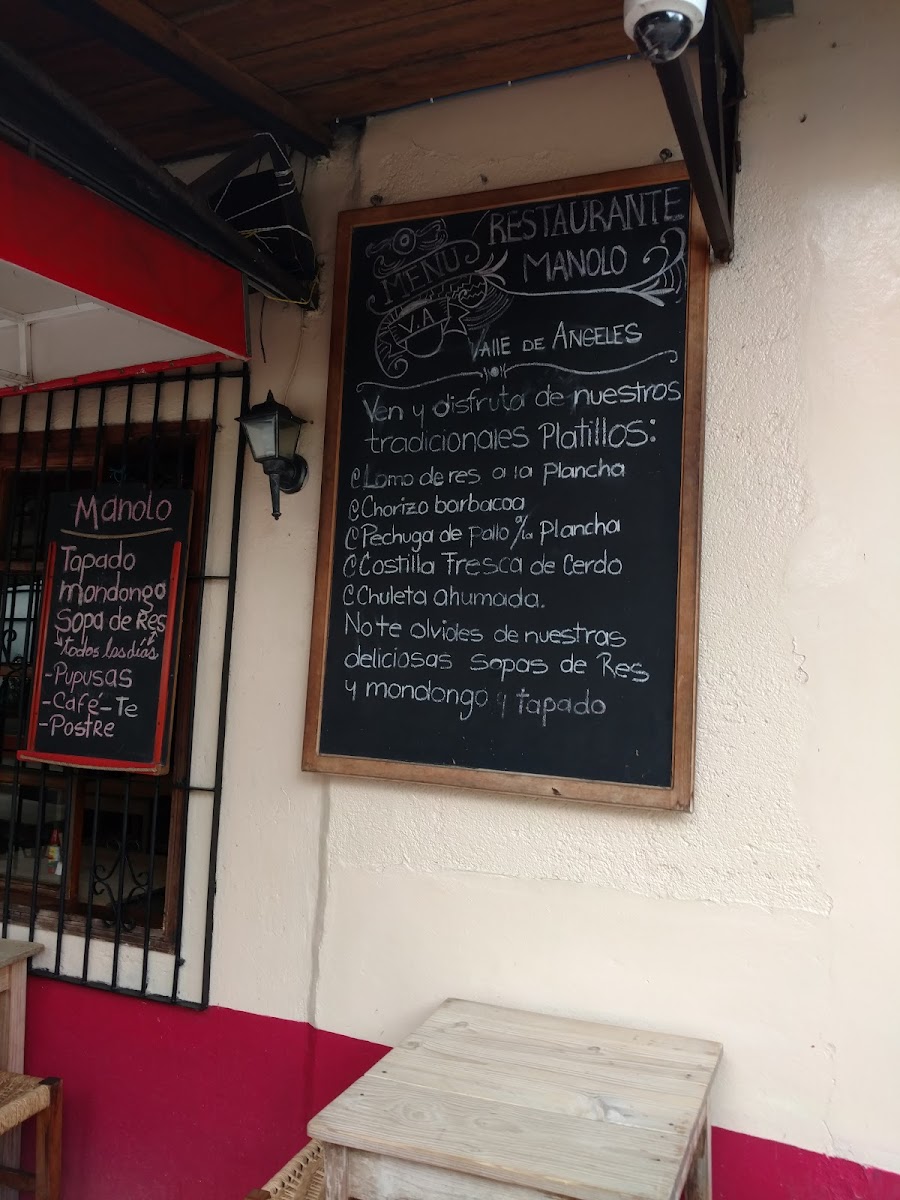 MENU
V.A
RESTAURANTE
MANOLO
Valle DE ANGELES
Ven y disfruta de nuestros
tradicionales Platillos:
Lomo de res a la Plancha
Chorizo barbacoa
Pechuga de Pollo a/la Plancha
Costilla Fresca de Cerdo
Chuleta ahumada.
No te olvides de nuestras
deliciosas sopas de Res
y mondongo y tapado
Manolo
Tapado
mondongo
Sopa de Res
todos los días
-Pupusas
-Café-Te
-Postre